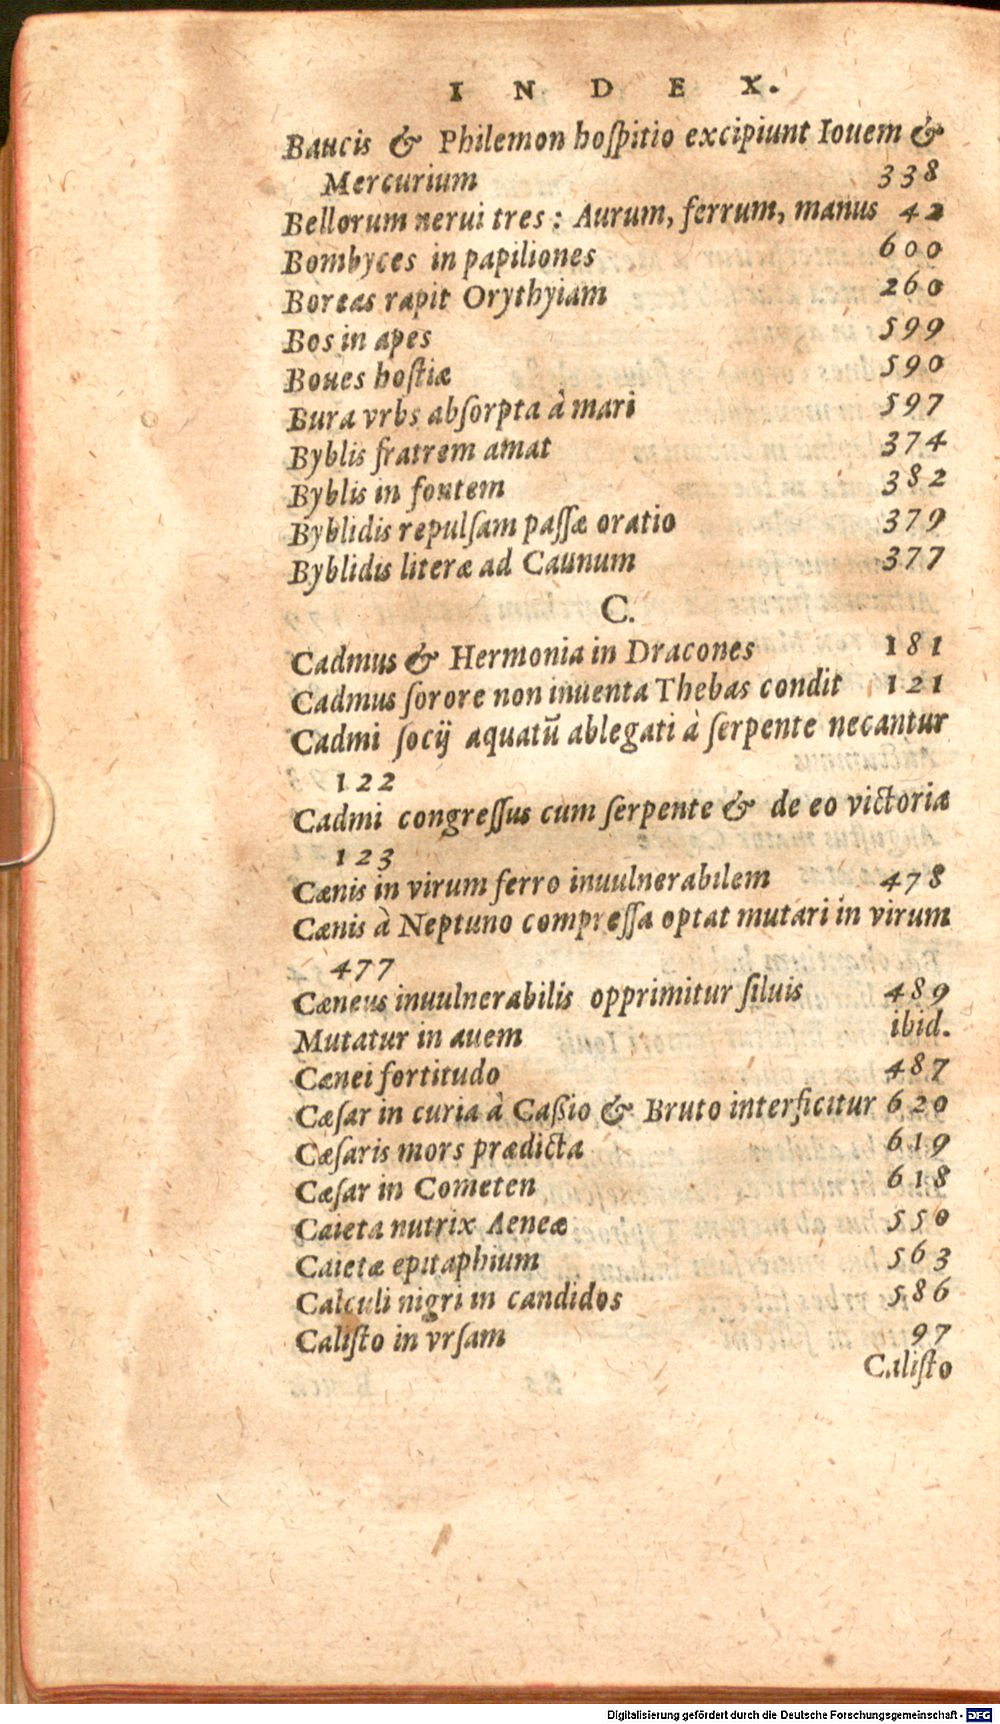 INDEX.
Baucis & Philemon hoſpitio excipiunt Iouem &
Mercurium 338
Bellorum nerui tres : Aurum, ferrum, manus 42
Bombyces in papiliones 600
Boreas rapit Orythyiam 260
Bos in apes 599
Boues hoſtiæ 590
Bura vrbs abſorpta à mari 597
Byblis fratrem amat 374
Byblis in fontem 382
Byblidis repulſam paſſæ oratio 379
Byblidis literæ ad Caunum 377
C.
Cadmus & Hermonia in Dracones 181
Cadmus ſorore non inuenta Thebas condit 121
Cadmi ſocij aquatū ablegati à ſerpente necantur
122
Cadmi congreſſus cum ſerpente & de eo victoria
123
Cænis in virum ferro inuulnerabilem 478
Cænis à Neptuno compreſſa optat mutari in virum
477
Cæneus inuulnerabilis opprimitur ſiluis 489
Mutatur in auem ibid.
Cænei fortitudo 487
Cæſar in curia à Caßio & Bruto interficitur 620
Cæſaris mors prædicta 619
Cæſar in Cometen 618
Caieta nutrix Aeneæ 550
Caietæ epitaphium 563
Calculi nigri in candidos 586
Caliſto in vrſam 97
Caliſto
Digitalisierung gefördert durch die Deutsche Forschungsgemeinschaft - DFG